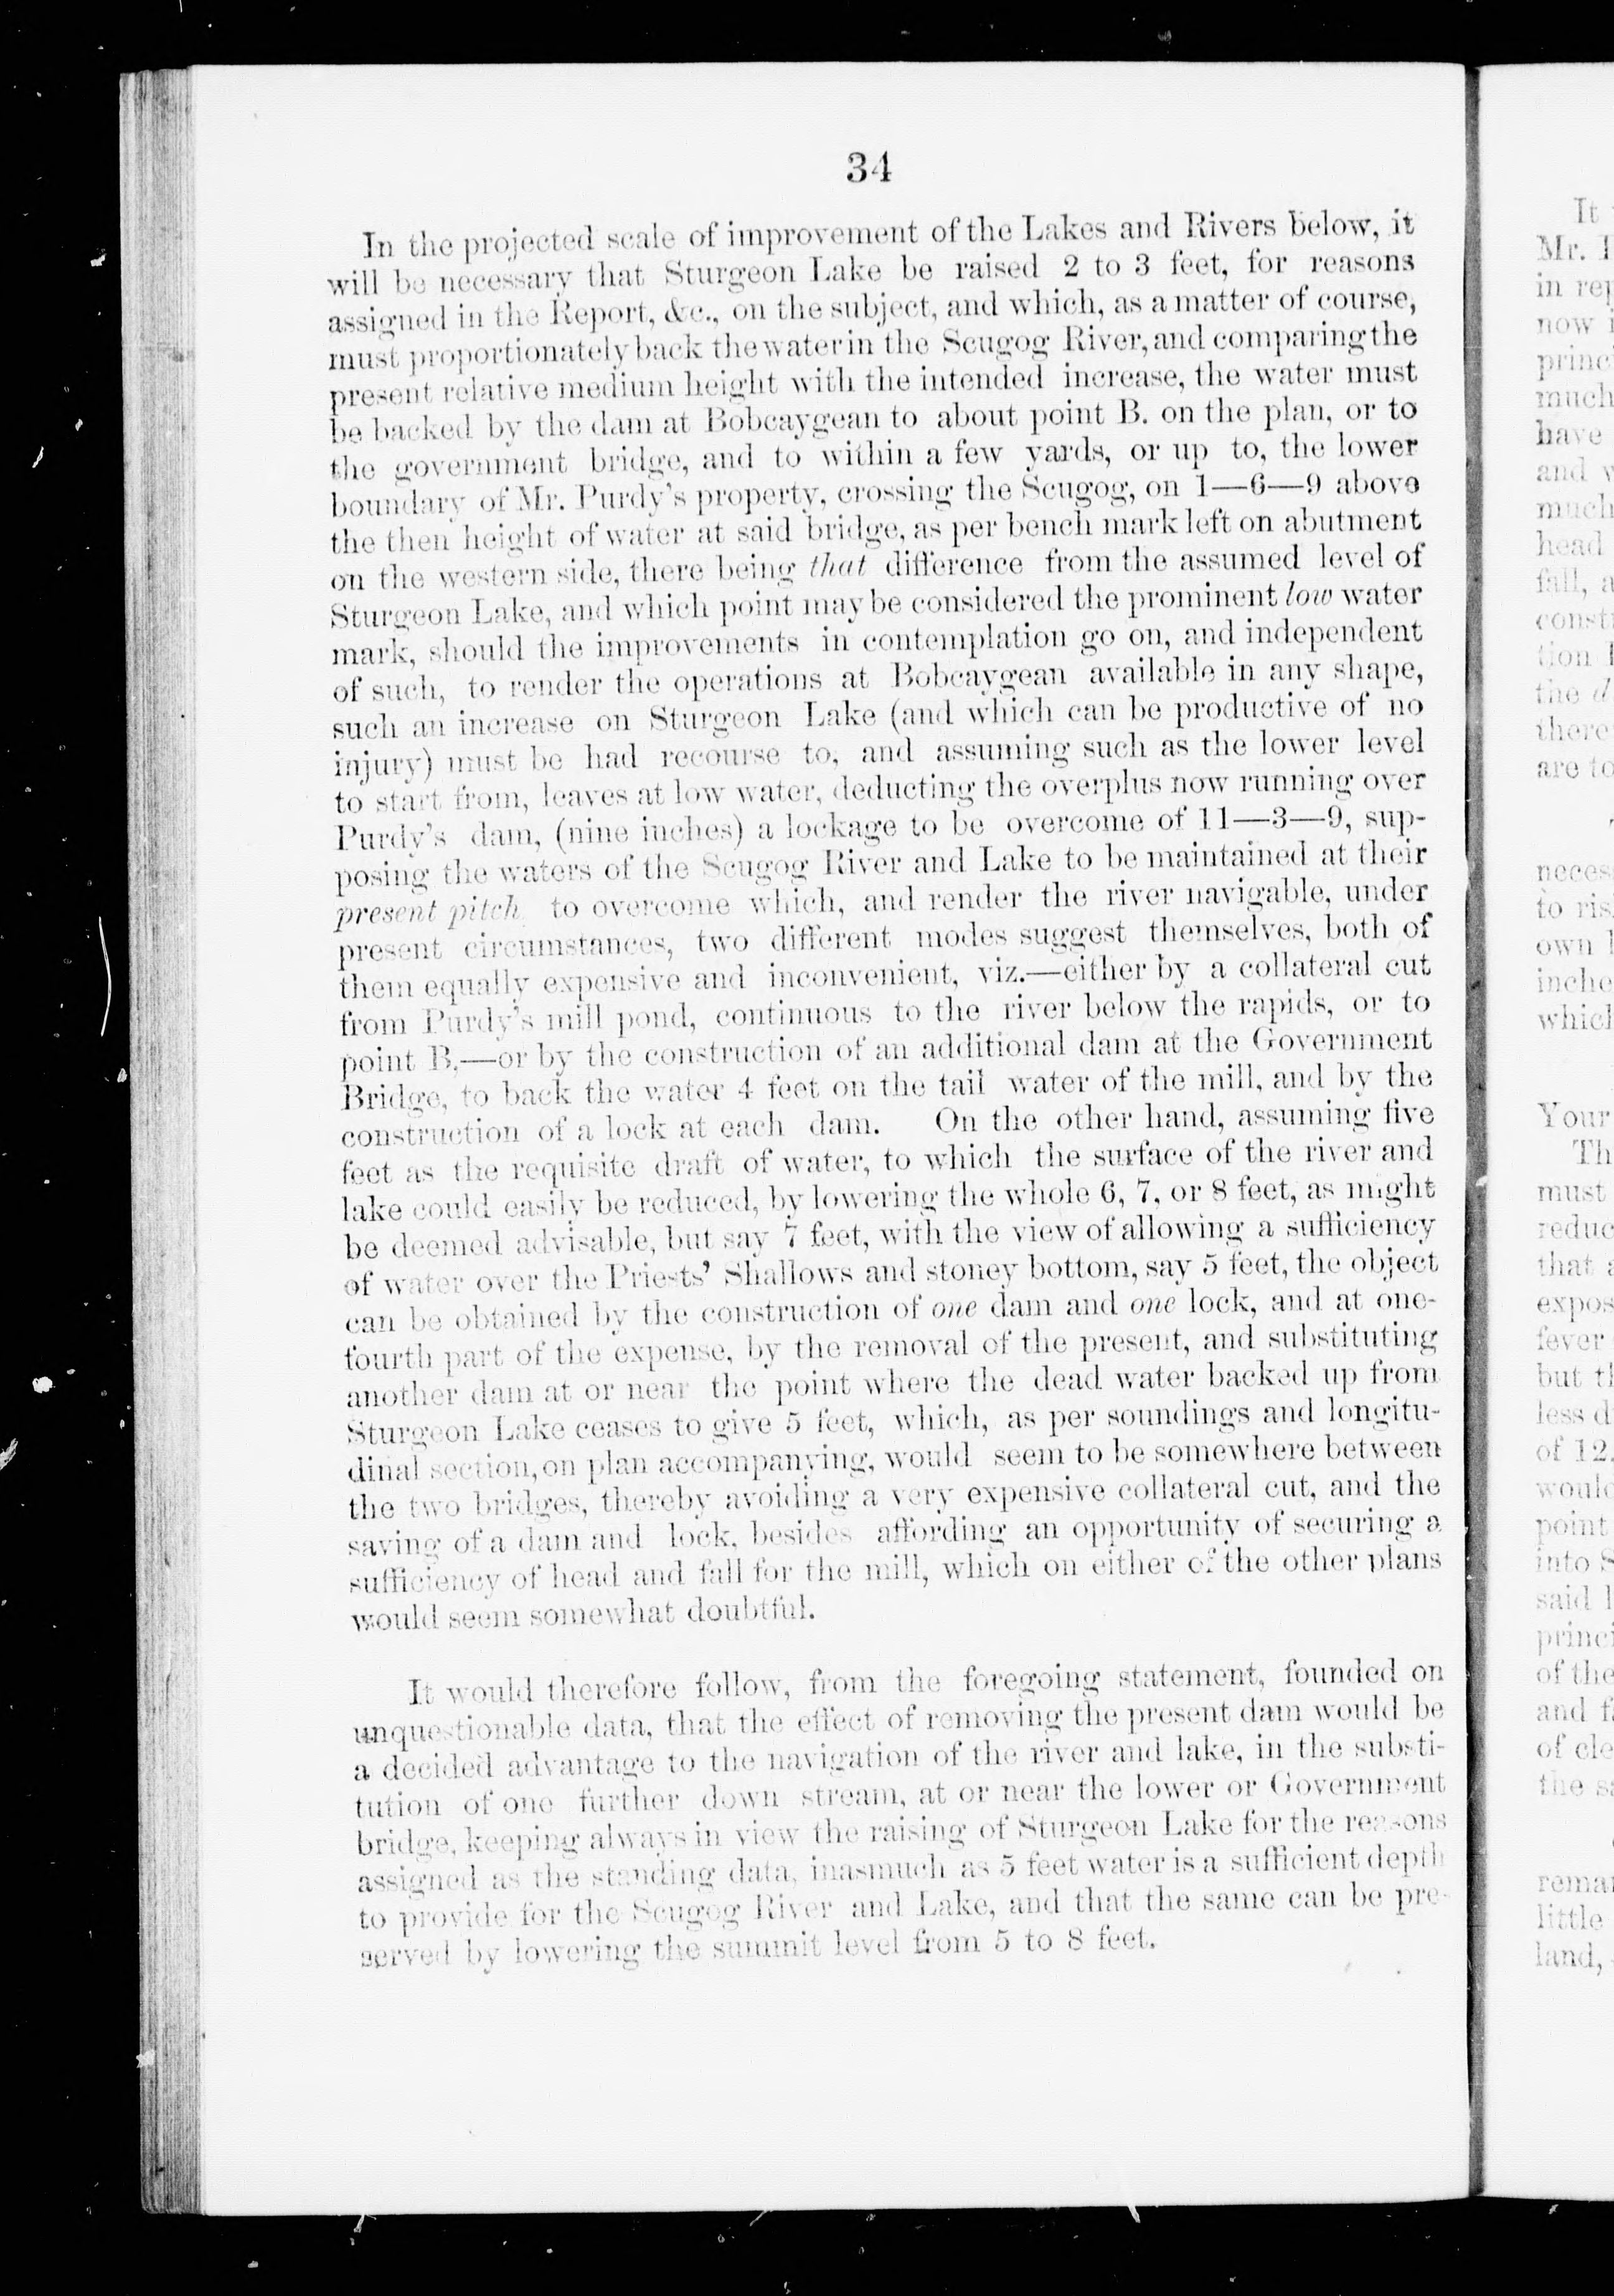 34
In the projected scale of improvement of the Lakes and Rivers below, it
will be necessary that Sturgeon Lake be raised 2 to 3 feet, for reasons
assigned in the Report, &c., on the subject, and which, as a matter of course,
must proportionately back the water in the Scugog River, and comparing the
present relative medium height with the intended increase, the water must
be backed by the dam at Bobcaygean to about point B. on the plan, or to
the government bridge, and to within a few yards, or up to, the lower
boundary of Mr. Purdy's property, crossing the Scugog, on 1—6—9 above
the then height of water at said bridge, as per bench mark left on abutment
on the western side, there being that difference from the assumed level of
Sturgeon Lake, and which point may be considered the prominent low water
mark, should the improvements in contemplation go on, and independent
of such, to render the operations at Bobcaygean available in any shape,
such an increase on Sturgeon Lake (and which can be productive of no
injury) must be had recourse to, and assuming such as the lower level
to start from, leaves at low water, deducting the overplus now running over
Purdy's dam, (nine inches) a lockage to be overcome of 11—3—9, sup-
posing the waters of the Scugog River and Lake to be maintained at their
present pitch to overcome which, and render the river navigable, under
present circumstances, two different modes suggest themselves, both of
them equally expensive and inconvenient, viz.—either by a collateral cut
from Purdy's mill pond, continuous to the river below the rapids, or to
point B,—or by the construction of an additional dam at the Government
Bridge, to back the water 4 feet on the tail water of the mill, and by the
construction of a lock at each dam. On the other hand, assuming five
feet as the requisite draft of water, to which the surface of the river and
lake could easily be reduced, by lowering the whole 6, 7, or 8 feet, as might
be deemed advisable, but say 7 feet, with the view of allowing a sufficiency
of water over the Priests' Shallows and stoney bottom, say 5 feet, the object
can be obtained by the construction of one dam and one lock, and at one-
fourth part of the expense, by the removal of the present, and substituting
another dam at or near the point where the dead water backed up from
Sturgeon Lake ceases to give 5 feet, which, as per soundings and longitu-
dinal section, on plan accompanying, would seem to be somewhere between
the two bridges, thereby avoiding a very expensive collateral cut, and the
saving of a dam and lock, besides affording an opportunity of securing a
sufficiency of head and fall for the mill, which on either of the other plans
would seem somewhat doubtful.
It would therefore follow, from the foregoing statement, founded on
unquestionable data, that the effect of removing the present dam would be
a decided advantage to the navigation of the river and lake, in the substi-
tution of one further down stream, at or near the lower or Government
bridge, keeping always in view the raising of Sturgeon Lake for the reasons
assigned as the standing data, inasmuch as 5 feet water is a sufficient depth
to provide for the Scugog River and Lake, and that the same can be pre-
served by lowering the summit level from 5 to 8 feet.
It
Mr.
in
now
much
have
and
much
head
fall,
the
there
are to
own
Your
must
that
fever
but
less
of 12
point
into
said
of the
and
of
the
little
land,